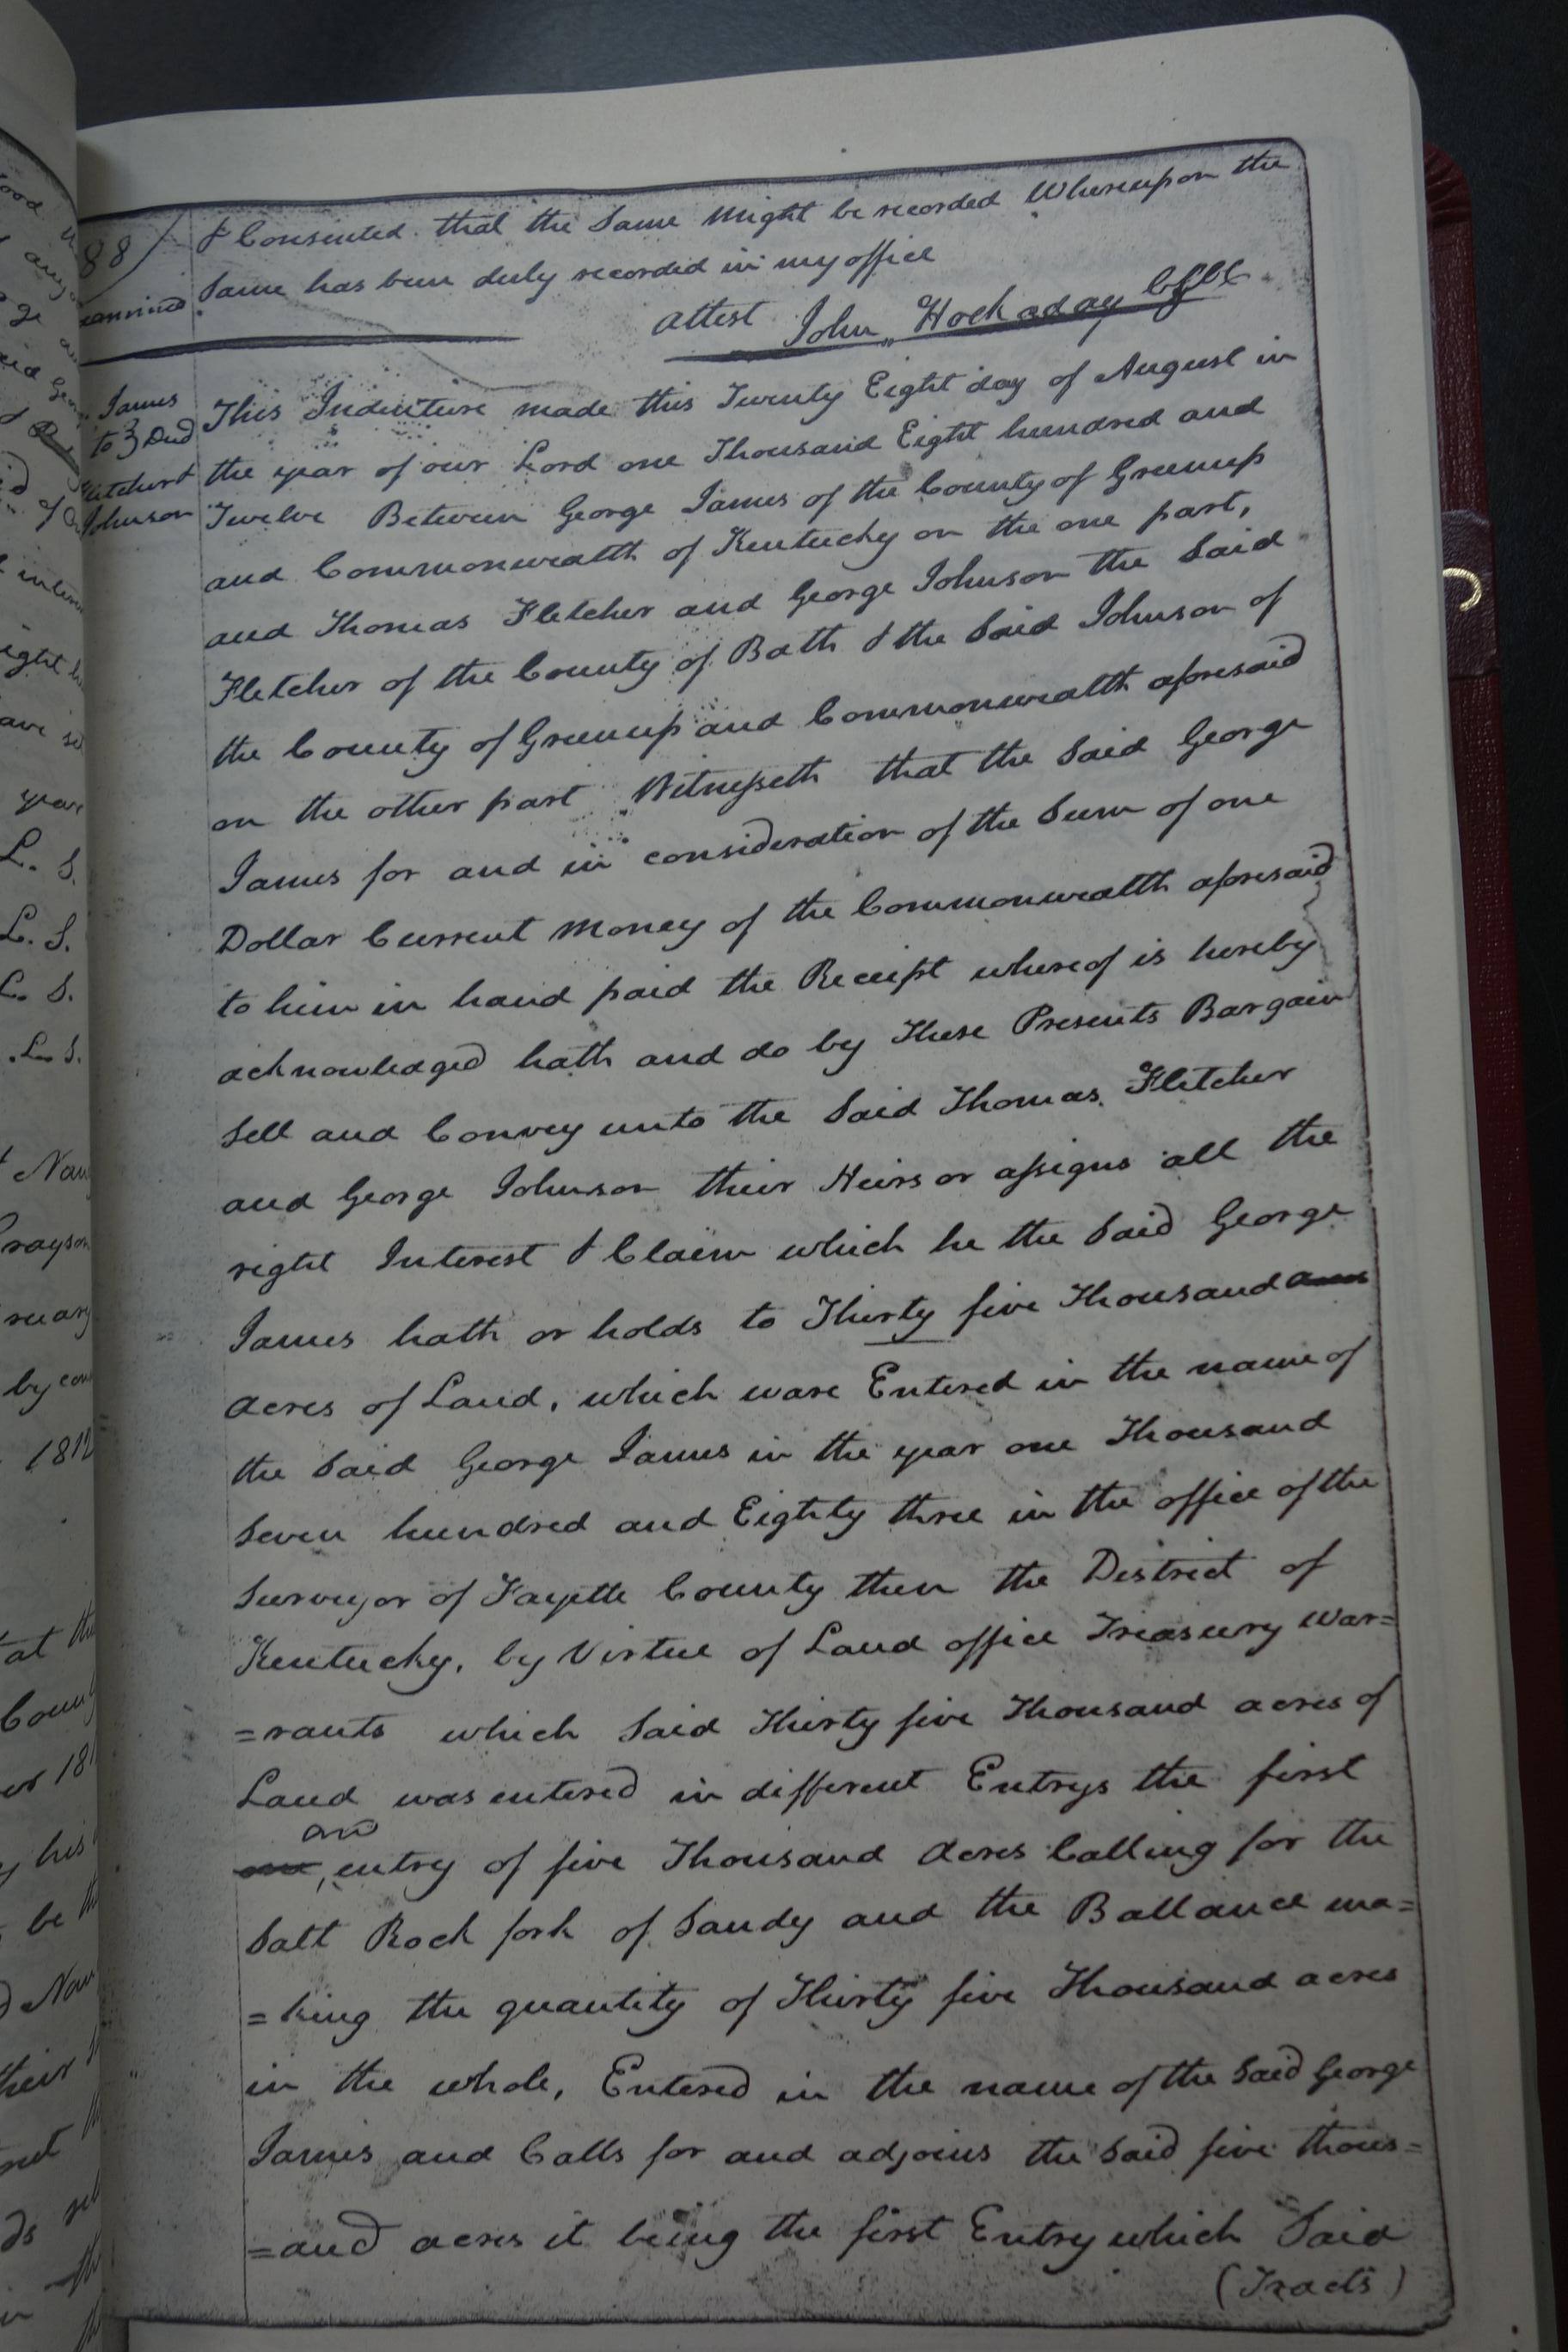 88
& Consented that the Same might be recorded Whereupon the
Same has been duly recorded in my office
Examined
attest John Hockaday
James
to } Deed
Fletcher &
Johnson
This Indenture made this Twenty Eight day of August in
the year of our Lord one Thousand Eight hundred and
Twelve Between George James of the County of Greenup
and Commonwealth of Kentucky on the one part,
and Thomas Fletcher and George Johnson the Said
Fletcher of the County of Bath & the Said Johnson of
the County of Greenup and Commonwealth aforesaid
on the other part Witnesseth that the Said George
James for and in consideration of the Sum of one
Dollar Current money of the Commonwealth aforesaid
to him in hand paid the Receipt whereof is hereby
acknowledged hath and do by These Presents Bargain
Sell and Convey unto the Said Thomas Fletcher
and George Johnson their Heirs or assigns all the
right Interest & Claim which he the Said George
James hath or holds to Thirty five Thousand
acres of Land, which ware Entered in the name of
the Said George James in the year one Thousand
Seven hundred and Eighty three in the office of the
Surveyor of Fayette County then the District of
Kentucky, by Virtue of Land office Treasury War=
=rants which Said Thirty five Thousand acres of
Land was entered in different Entrys the first
and
entry of five Thousand Acres Calling for the
Salt Rock fork of Sandy and the Ballance ma=
=king the quantity of Thirty five Thousand acres
in the whole, Entered in the name of the Said George
James and Calls for and adjoins the Said five thous=
=and acres it being the first Entry which Said
(Tracts)